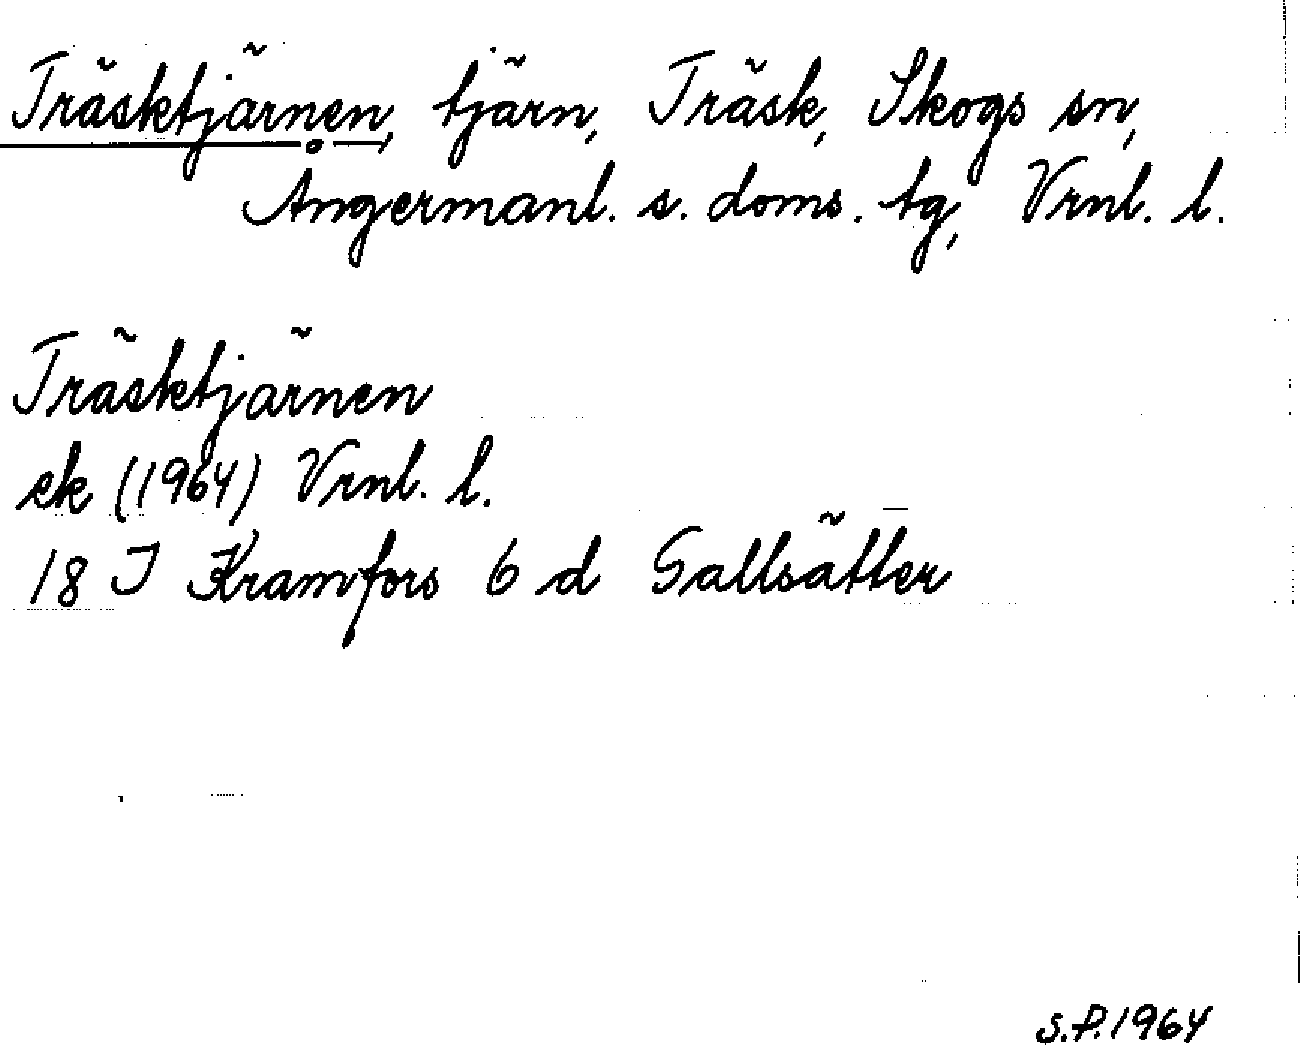 Träsktjärnen, tjärn, Träsk, Skogs sn,
Ångermanl. s. doms. tg, Vrnl. l.
Träsktjärnen
ek (1964) Vrnl. l.
18 I Kramfors 6 d Gallsätter
S.P. 1964